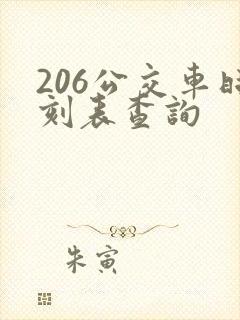 206公交車時
刻表查詢
朱寅